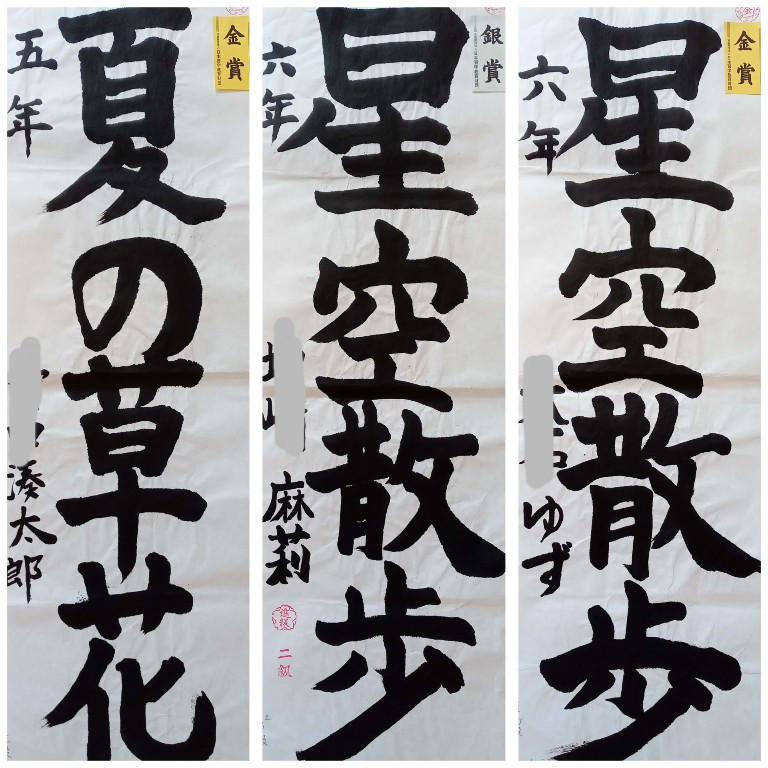 金賞
夏の草花
五年
湊太郎
銀賞
星空散歩
六年
麻莉
二級
金賞
星空散歩
六年
ゆず